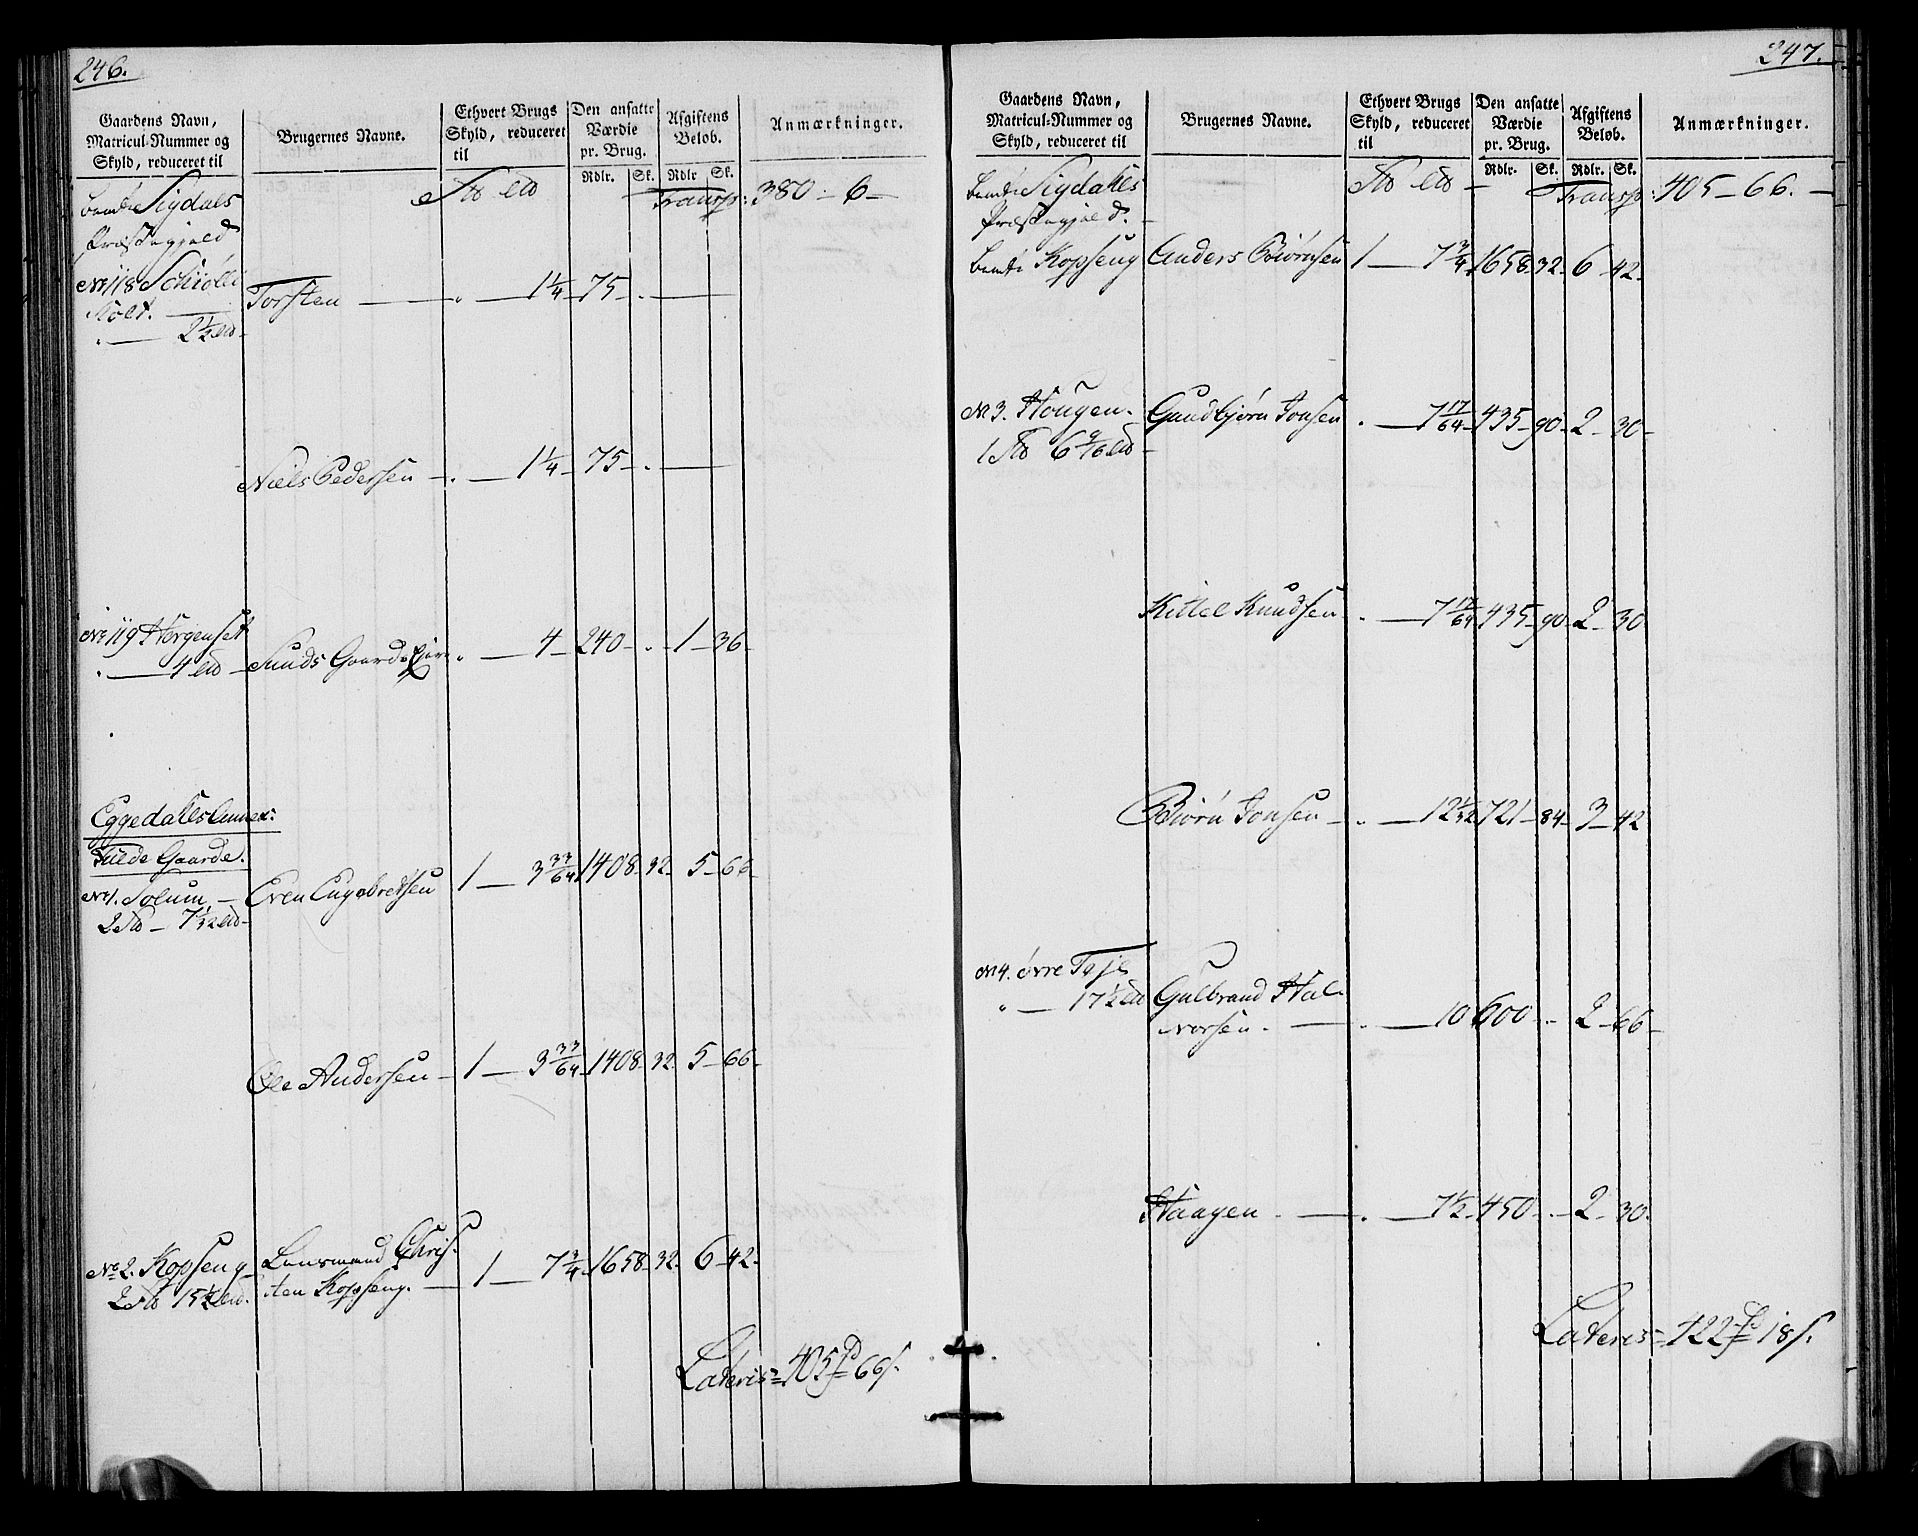 246.
Gaardens Navn, Matricul-Nummer og Skyld, reduceret til
Brugernes Navne.
Ethvert Brugs Skyld, reduceret til
Den ansatte Værdie pr. Brug.
Rdlr. Sk.
Afgiftens Belob.
Rdlr Sk.
Anmærkninger.
Sigdals Transp: 380 - 6 -
Præstegjeld
No 118
Holt. Torsten — " — 1 1/4 - 75 - . —
" — 2 1/2
Niels Pedersen - . — 1 1/4 - 75 - . —
No 119 Horgenset
" — 4 — " — 4 - 240 - . - 1 - 36 -
Eggedahls Annex:
Fulde Gaarde.
No 1. Solum, - Even Engebretsen 1 — 3 33/64 1408 - 32 - 5 - 66 -
2 — 7 1/32
Ole Andersen - 1 — 3 33/64 - 1408 - 32 - 5 - 66 -
No 2. Kopseng Lensmand Chris-
2 15 1/2 ten Kopseng. — 1 — 7 3/4 - 1658 - 32 - 6 - 42 -
Lateris = 405 66
247.
Gaardens Navn, Matricul-Nummer og Skyld, reduceret til
Brugernes Navne.
Ethvert Brugs Skyld, reduceret til
Den ansatte Værdie pr. Brug.
Rdlr. Sk.
Afgiftens Belob.
Rdlr. Sk.
Anmærkninger.
Sigdahls Transp: 405 - 66. -
Præstegjeld. -
Kopseng Anders Biörnsen 1 — 7 3/4 1658 - 32 - 6 - 42 -
No 3. Hougen - Gundbjörn Jonsen . — 7 17/64 - 435 - 90 - 2 - 30 -
1 6 9/16
Kittel Knudsen . — 7 17/64 435 - 90 - 2 - 30
Biörn Jonsen - . — 12 1/32 721 - 84 - 3 - 42
No 4. övre Tajl
" — 17 1/2 Gulbrand Hal-
vorsen. — . — 10 600 - . - 2 - 66 -
Haagen — . — 7 1/2 - 450 - . - 2 - 30.
Lateris = 422 18